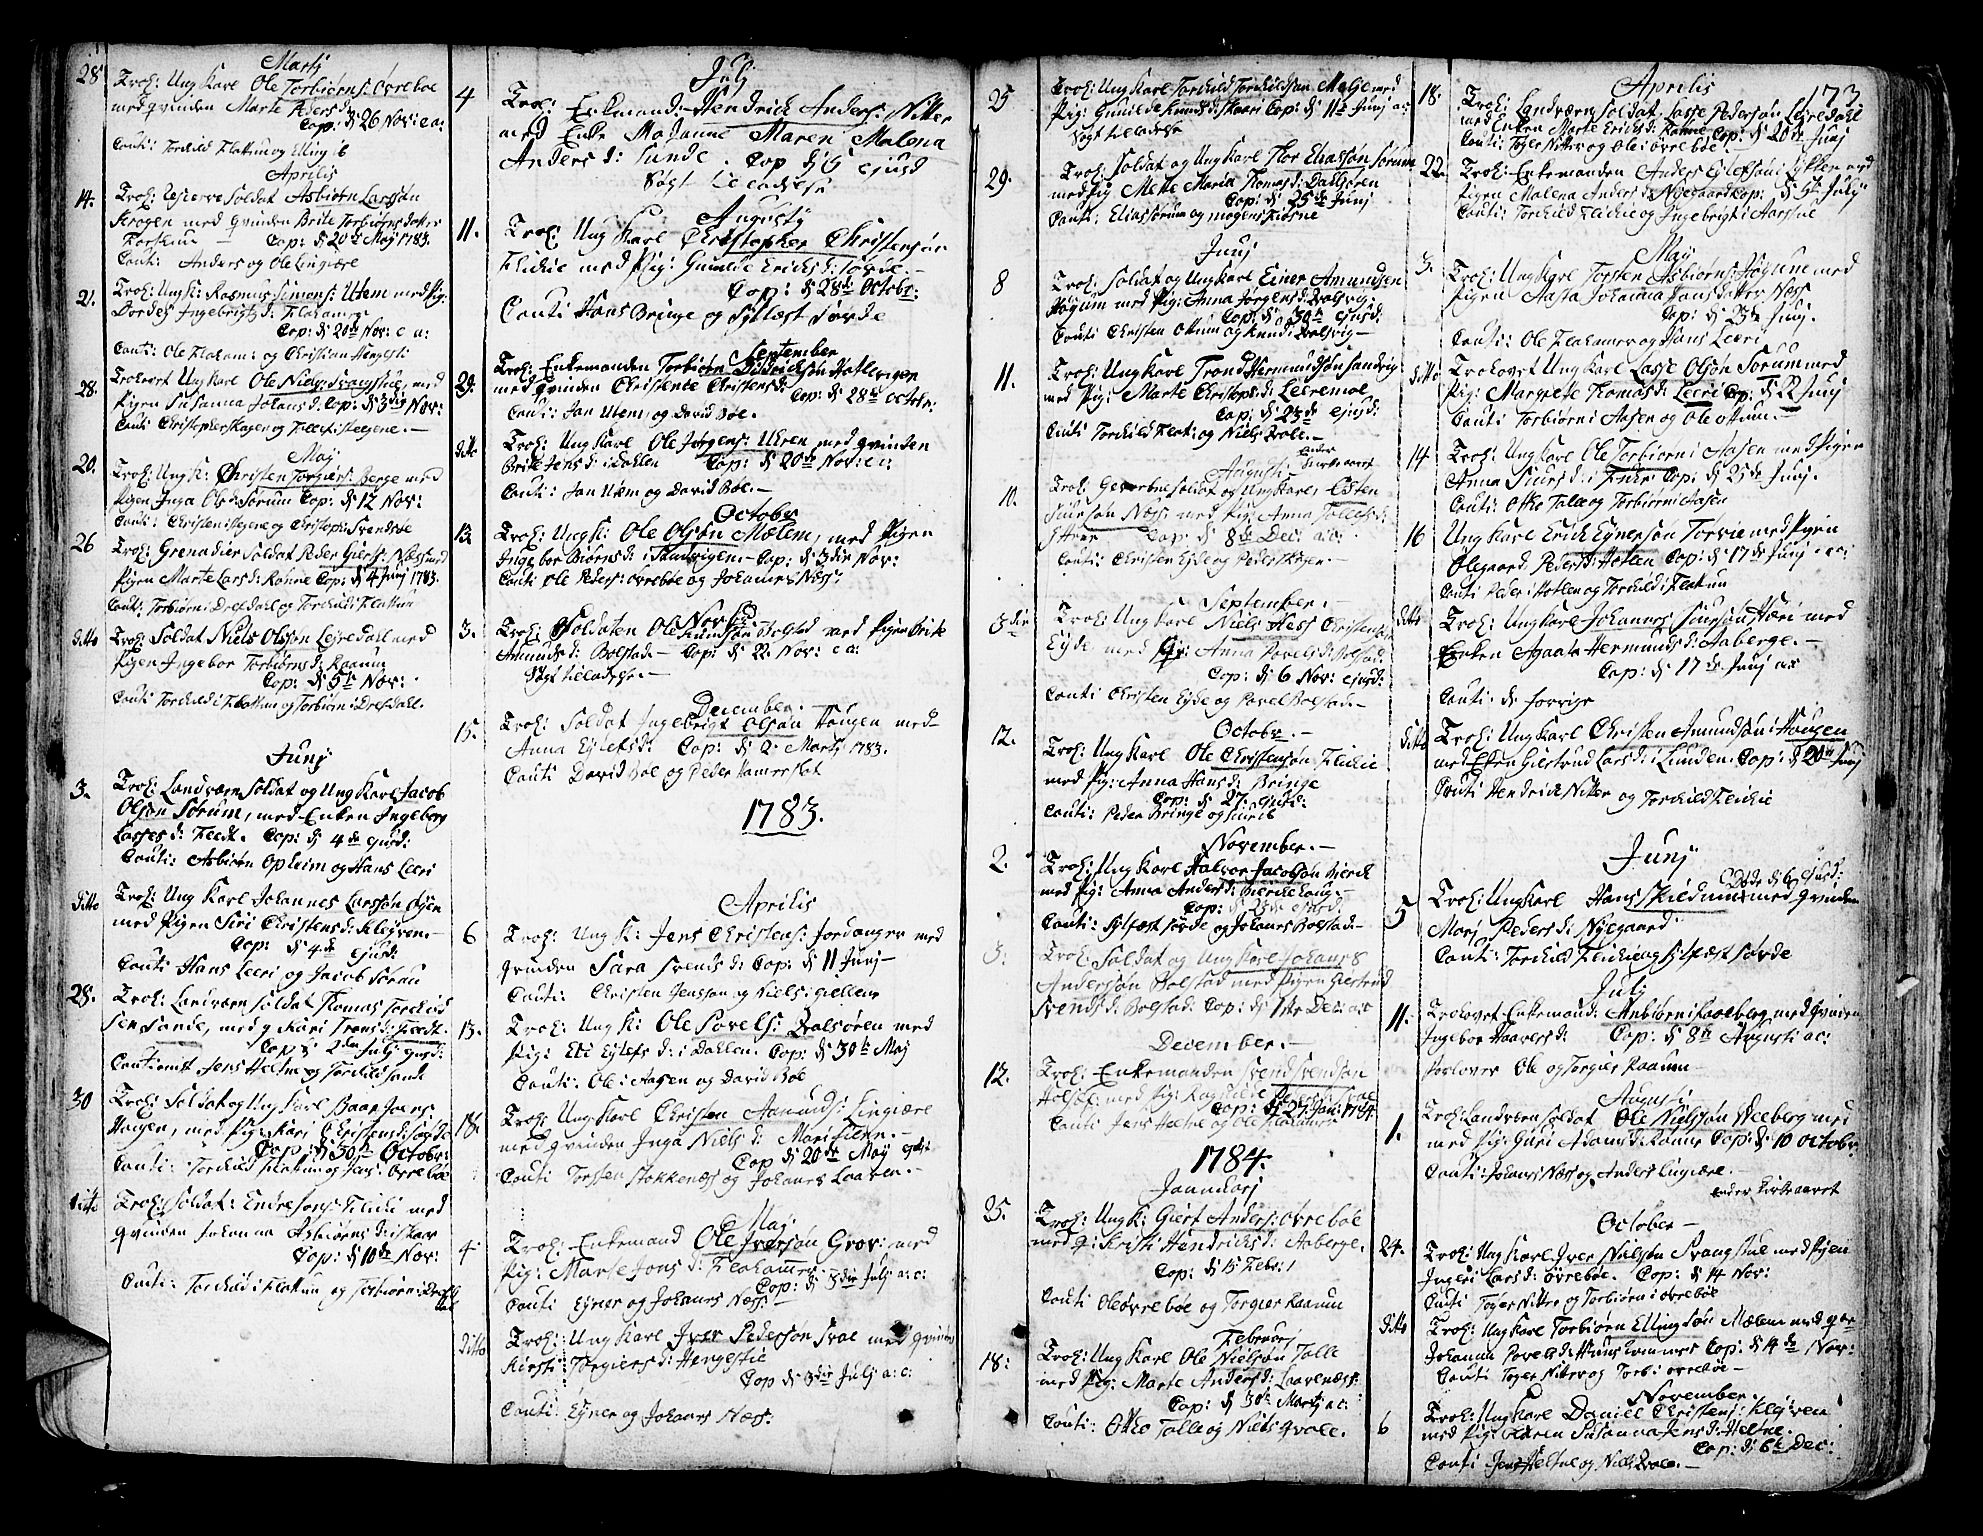 Martj
28 Trol: Ung Karl Ole Torbiørns: Øvreboe
med qvinden Marte Peders d:
Cop: d: 26 Nov: e a:
Cauti: Torchild Flattum og Elling ib
Aprilis
14. Trol: Reserve Soldat Asbiørn Larssøn
Krogen med qvinden Brite Torbiørns dotter
Cop: d: 20de Maj 1783.
Cauti: Anders og Ole Lingiære
21. Trol: Ung K: Rasmus Simons: Utem med Pig:
Dordej Ingebrigtz d: Flahamer
Cop: d: 20de Nov: e a:
Cauti: Ole Flaham: og Christian Hengesti
28. Trolovet Ung Karl Ole Niels: Svangstue, med
Pigen Susanna Johans d: Cop: d: 3die Nov:
Cauti: Christopher Skagen og
Maj
20. Trol: Ung K: Christen Torgiers: Berge med
Pigen Inga Ols d: Sorum Cop: d: 12 Nov:
Cauti: Christen
26 Trol: Grenadier Soldat Peder Giers: Næss med
Pigen Marte Lars d: Rønne Cop: d: 4 Junj 1783.
Cauti: Torbiørn i Drefdahl og Torchild i Flattun
ditto Trol: Soldat Niels Olssøn Lejredahl med
Pigen Ingebor Torbiørns d: Raaum
Cop: d: 5te Nov:
Cauti Torchild i Flattum og Torbiørn i Drefdahl.
Junj
3. Trol: Landværn Soldat og Ung Karl Jacob
Olssøn Sorum, med Enken Ingeborg
Lasses d: Fledt. Cop: d: 4de ejusd:
Cauti: Asbiørn Opheim og Hans Leeri
ditto Trol: Ung Karl Johannes Larssøn
med Pigen Siri Christens d: Klejven.
Cop: d: 4de ejusd:
Cauti Hans Leeri og Jacob Sorum
28. Trol: Landværn Soldat Thomas Torchild
sen Sande, med q Kari Trons d:
Cop d 2den Julj
Cauti Jens Heltne og Torchild Sande
30 Trol: Soldat og Ung Karl Baar Joens:
Haugen, med Pig: Kari Christens d: Sogde
Cop: d: 30te Octobr:
Cauti: Torchild Flattum og Jens Øvreboe
ditto Trol: Soldat: Endre Jons: Fliehi med
qvinden Johanna Asbiørns d: i Skaar
Cop: d: 10de Nov:
Cauti: Torchild i Flatum og Torbiørn i Drefdahl
Julj
4 Trol: Enkemand: Hendrick Anders: Nitter
med Enke Madame Maren Malena
Anders d: Sunde. Cop d: 5 ejusd
Søgt tilladelse
Augustj
11. Trol: Ung Karl Christopher Christensøn
Fliehie med Pig: Gunilde Erichs d: Sørde.
Cop: d: 28de Octobr:
Cauti Hans Bringe og Sylfæst Sørde
September
29. Trol: Enkemanden Torbiørn Didrichsøn
med qvinden Christence Christens d: Cop: d: 28de Octobr:
Cauti: Jan Utem og David Boe.
ditto Trol: Ung Karl Ole Jørgens: Uhren med qvinden
Brite Jens d: i Dahlen Cop: d: 20de Nov: e a:
Cauti: Jan Utem og David Boe.
Octobr
13. Trol: Ung K: Ole Olssøn Mælem, med Pigen
Ingebor Biørns d: i Skadvigen Cop: d: 3die Nov:
Cauti Ole Peders: Øvreboe og Johannes Næss:
Novbr
3. Trol: Soldaten Ole Knudsøn Bolstad med Pigen Brite
Amunds d: Bolstad. Cop: d: 22. Nov: e a:
Søgt tilladelse.
December.
15. Trol: Soldat Ingebrigt Olssøn Haugen med
Anna Eylefs d. Cop: d: 2. Martj 1783.
Cauti David Boe og Peder Hamerstat
1783.
Aprilis
6 Trol: Ung K: Jens Christens: Jordanger med
qvinden Sara Svends d: Cop: d: 11 Junj
Cauti: Christen Jenssøn og Niels i Giellene
13. Trol: Ung K: Ole Povels: Qvalsøren med
Pig: Eli Eylefs d: i Dahlen. Cop: d: 30te Maj
Cauti: Ole i Aasen og David Boe
18. Trol: Ung Karl Christen Aamunds: Lingiære
med qvinden Inga Niels d: Marifiæren.
Cop d: 20de Maj
Cauti Torsten Stokkenæss og Johannes Laaven.
Maj
4. Trol: Enkemand Ole Iversøn Grov: med
Pig: Marte Jons d: Flahamer
Cop: d: 3die Julj a: c:
Cauti Eyner og Johannes Næss:
ditto Trol: Ung Karl Iver Pedersøn Svae med qvinden
Kirsti Torgiers d: Hengestie
Cop d: 3die Julj a: c:
Cauti: Eyner og Johannes Næss:
25 Trol: Ung Karl Torchild Torchildsøn Melje med
Pig: Gunilde Knuds d: Skaar Cop: d: 11te Junj a:
Søgt tilladelse
29. Trol: Soldat og Ung Karl Thor Eliassøn Sorum
med Pig Mette Maria Thomas d: Dahlsøren
Cop: d: 25de Junj
Cauti: Elias Sorum og Mogens
Junj
8 Trol: Soldat og Ung Karl Einer Amundsen
Høgum med Pig: Anna Jørgens d: Bolsvig
Cop: d: 30te ejusd:
Cauti Christen Ottum og Knud i Bolsvig
11. Trol: Ung Karl Trond Hermundssøn Sandvig
med Pig: Marte Christophs d: Leiremoe
Cop: d: 25de ejusd:
Cauti Torchild Flat: og Niels Qvale.
Augusti
10. Trol: Gevorbne Soldat og Ung Karl, Østen
Siursøn Næss med Pig: Anna Tollefs d:
Cop d: 8de Dec: a: c:
Cauti: Christen Eyde og Peder Skagen
September.
8die Trol: Ung Karl Niels Hess Christensøn
Eyde med Qv: Anna Povels d: Bolstad.
Cop: d: 6 Nov: ejusd:
Cauti Christen Eyde og Povel Bolstad.
Octobr.
12. Trol: Ung Karl Ole Christensøn Fliehie
med Pig: Anna Hans d: Bringe
Cop: d: 27. ejusd:
Cauti: Peder Bringe og Siur ib
November.
2. Trol: Ung Karl Halvor Jacobsøn
med Pig: Anna Anders d:
Cop: d: 25de ejusd
Cauti: Sylfæst Sørde og Johannes Bolstad.
3. Trol: Soldat og Ung Karl Johannes
Andersøn Bolstad med Pigen Giertrud
Svends d: Bolstad: Cop: d: 1ste Dec: a: c
December.
12. Trol: Enkemanden Svend Svendsøn
med Pig: Ragnilde Peders d: Svae
Cop: d: 27 Jan: 1784
Cauti Jens Heltne og Ole Flahamer
1784.
Januarj
25. Trol: Ung K: Giert Anders: Øvreboe
med q: Kristi Hendrichs d: Aaberge.
Cop: d: 15 Febr:
Cauti Ole Øvreboe og Torgier Raaum
Februarj
18: Trol: Ung Karl Ole Nielsøn Talle
med Pig: Marte Anders d: Laavenæss:
Cop: d: 30te Martj a: c:
Cauti: Otto Talle og Niels Qvale.
173
Aprilis
18. Trol: Landværn Soldat Lasse Pedersøn Lejredahl
med Enken Marte Erichs d: Rønne Cop: d: 20de Junj
Cauti: Toger Nitter og Ole i Øvreboe
22. Trol: Enkemanden Anders Eylefsøn i Lykken med
Pigen Malena Anders d: Nyegaard Cop: d: 5te Julij
Cauti: Torchild Fliehie og Ingebrigt i Aarsne
Maj
3. Trol: Ung Karl Torsten Asbiørns: Høgune med
Pigen Aasta Johanna Hans dotter Næss
Cop: d: 23de Junj.
Cauti: Ole Flahamer og Hans Leeri
ditto Trolovet Ung Karl Lasse Olsøn Sorum med
Pig: Margrete Thomas d: Leeri Cop: d: 22 Junij
Cauti: Torbiørn i Aasen og Ole Ottum.
14 Trol: Ung Karl Ole Torbiørn i Aasen med Pigen
Anna Siurs d: i Cop: d: 25de Junj.
Cauti: Otto Talle og Torbiørn i Aasen
16 Ung Karl Erich Eynersøn Torvie med Pigen
Olegaard Peders d: Hotlen Cop: d: 17de Junj e a:
Cauti Peder i Hotlen og Torchild i Flattun
ditto Trol: Ung Karl Johannes Siursøn Hæri med
Enken Agaata Hermunds d: Aaberge.
Cop: d: 17de Junj a: c
Cauti: de forrige
ditto Trol: Ung Karl Christen Amundsøn i Haugen
med Enken Giertrud Lars d: i Lunden. Cop: d: 20de Junj
Cauti Hendrick Nitter og Torchild Fliehie
Junj
5 Trol: Ung Karl Hans Skildum med qvinden
Cop: d: 6 ejusd:
Marj Peders d: Nyegaard
Cauti: Torchild Fliehie og Silfæst Sørde
Julj
11. Trolovet Enkemand: Anbiørn i Faaberg med qvinden
Ingebor Haavers d: Cop: d: 8de Augusti a c:
Forlover Ole og Torgier Raaum
Augusti
1. Trol: Landværn Soldat Ole Nielsøn Veeberg med
med Pig: Guri Adams d: Rønne Cop: d: 10 Octobr:
Cauti: Johannes Næss og Anders Lingiære.
October
24. Trol: Ung Karl Iver Nielsøn Svangstue med Pigen
Ingeri Lars d: Øvreboe. Cop: d: 14 Nov:
Cauti Toger Nitter og Torbiørn i Øvreboe
ditto Trol: Ung Karl Torbiørn Ellingsøn Mælem med
Johanna Povels d: Cop: d: 14de Nov:
Cauti Toger Nitter og Torb: i Øvreboe
November.
6 Trol: Ung Karl Daniel Christens: Klejven
med Pig: Susanna Jens d: Heltne.
Cop: d: 6te Dec:
Cauti Jens Heltne og Niels Qvale.